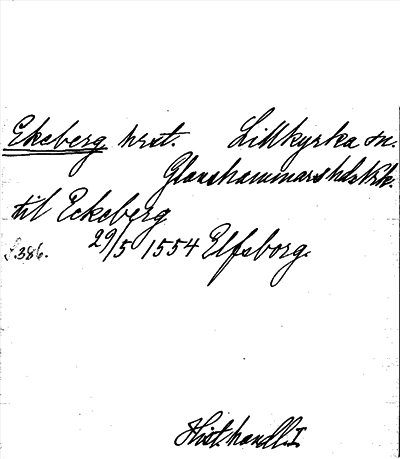 Ekeberg hrst. Lillkyrka sn.
Glanshammars hd
til Eckeberg
S. 386. 29/5 1554 Elfsborg.
Hist. handl. I